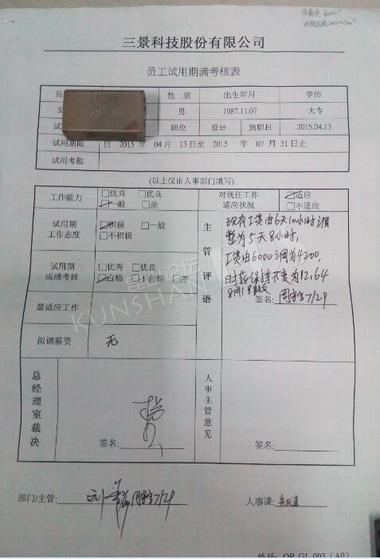 三景科技股份有限公司
员工试用期满考核表
性别 出生年月 学历
男 1987.11.07 大专
职位 设计 到职日 2015.04.13
试用期限 自 2015 年 04 月 13日至 2015 年 07 月 31日止
试用考批
(以上仅由人事部门填写)
工作能力 □优秀 □优良 对现任工作 适应
一般 □差 适应状况 □不适应
试用期 积极 □一般
工作态度 □不积极
试用期 □优秀 □优良
成绩考核 合格 □不合格 □差
主管评语
现有工资由6天10小时调
整为5天8小时,
工资由6000调为4200,
时薪保持不变为12.64
签名: 7/29
最适应工作
拟调薪资 无
总经理室裁决
签名:
人事主管意见
签名:
部门/主管: 7/29
人事课:
KUNSHAN